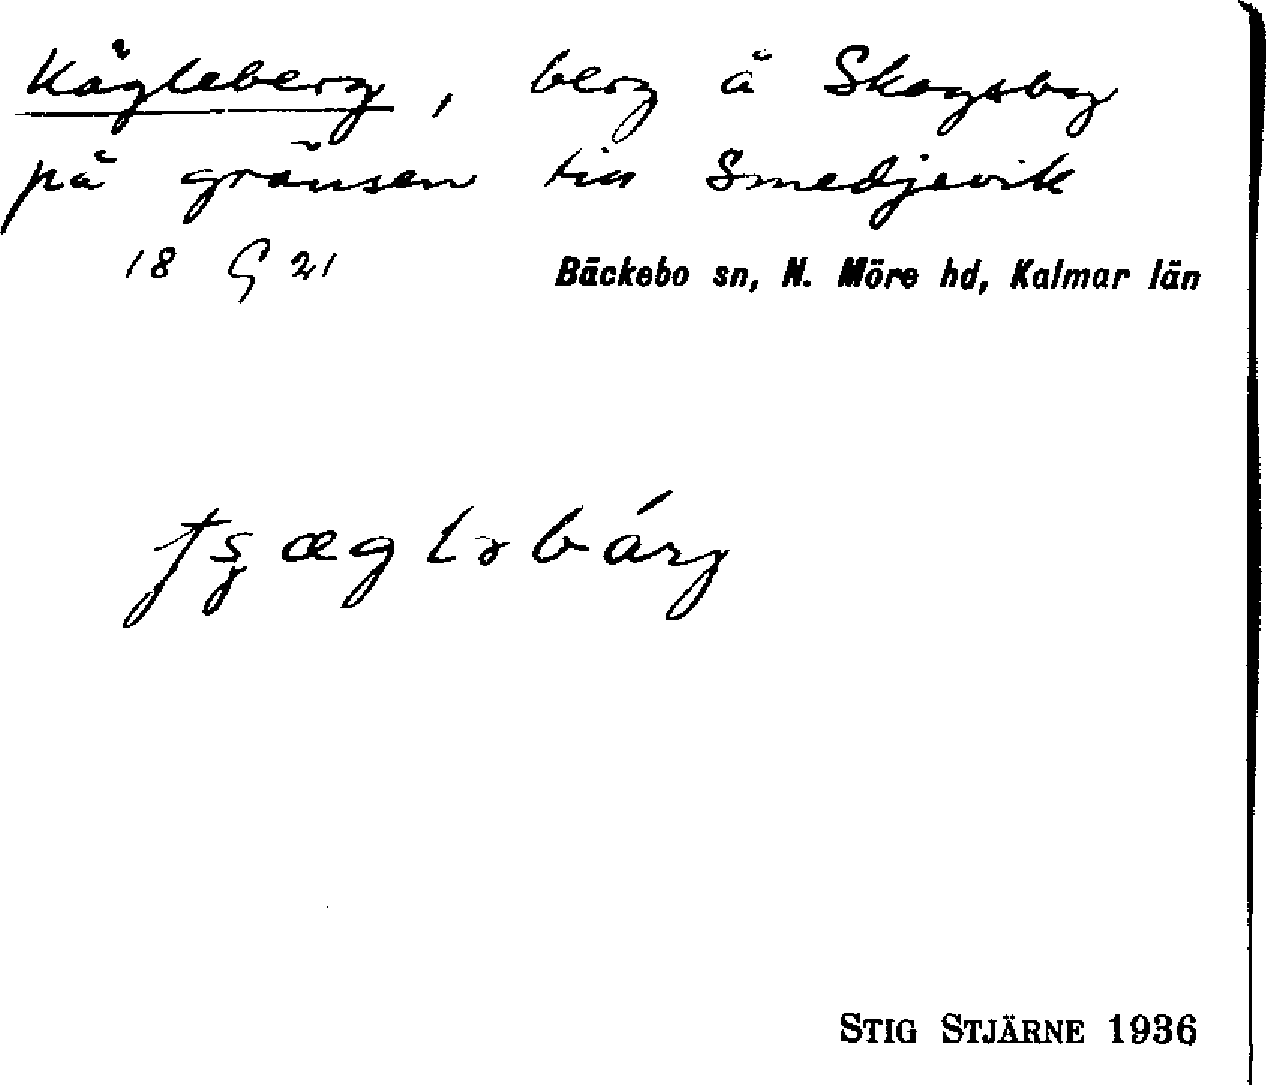 Kägleberg, berg å Skogsby
på gränsen till Smedjevik
18 G 21
Bäckebo sn, N. Möre hd, Kalmar län
STIG STJÄRNE 1936